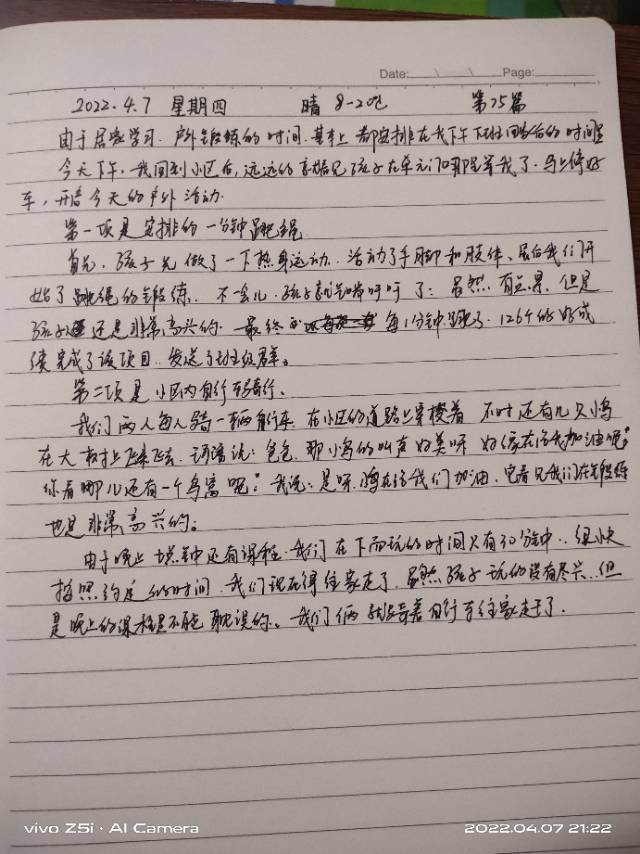 Date: \ \ Page:
2022.4.7 星期四 晴 8-20℃ 第75篇
由于居家学习.户外锻练的时间.基本上都安排在我下午下班回来后的时间
今天下午.我回到小区后,远远的就看见孩子在单元门口那里等我了.马上停好
车,开启今天的户外活动.
第一项是安排的一分钟跳绳
首先.孩子先做了一下热身运动.活动了手脚和肢体、最后我们开
始了跳绳的锻练.不一会儿.孩子就气喘吁吁了:虽然有点累.但是
孩子还是非常高兴的.最终每1分钟跳了126个的好成
绩完成了该项目.发送了班级群。
第二项是小区内自行车骑行.
我们两人每人骑一辆自行车.在小区的道路上穿梭着 不时还有几只小鸟
在大树上飞来飞去.说:爸爸.那小鸟的叫声好美呀 好像在给我加油呢?
你看哪儿还有一个鸟窝呢?我说:是呀.鸟在给我们加油.它看见我们在锻练
也是非常高兴的。
由于晚上还有课程.我们在下面玩的时间只有30分钟..很快
按照约定的时间.我们现在得往家走了.虽然孩子玩的没有尽兴.但
是晚上的课程是不能耽误的、我们俩就骑着自行车往家走了.
vivo Z5i · AI Camera
2022.04.07 21:22